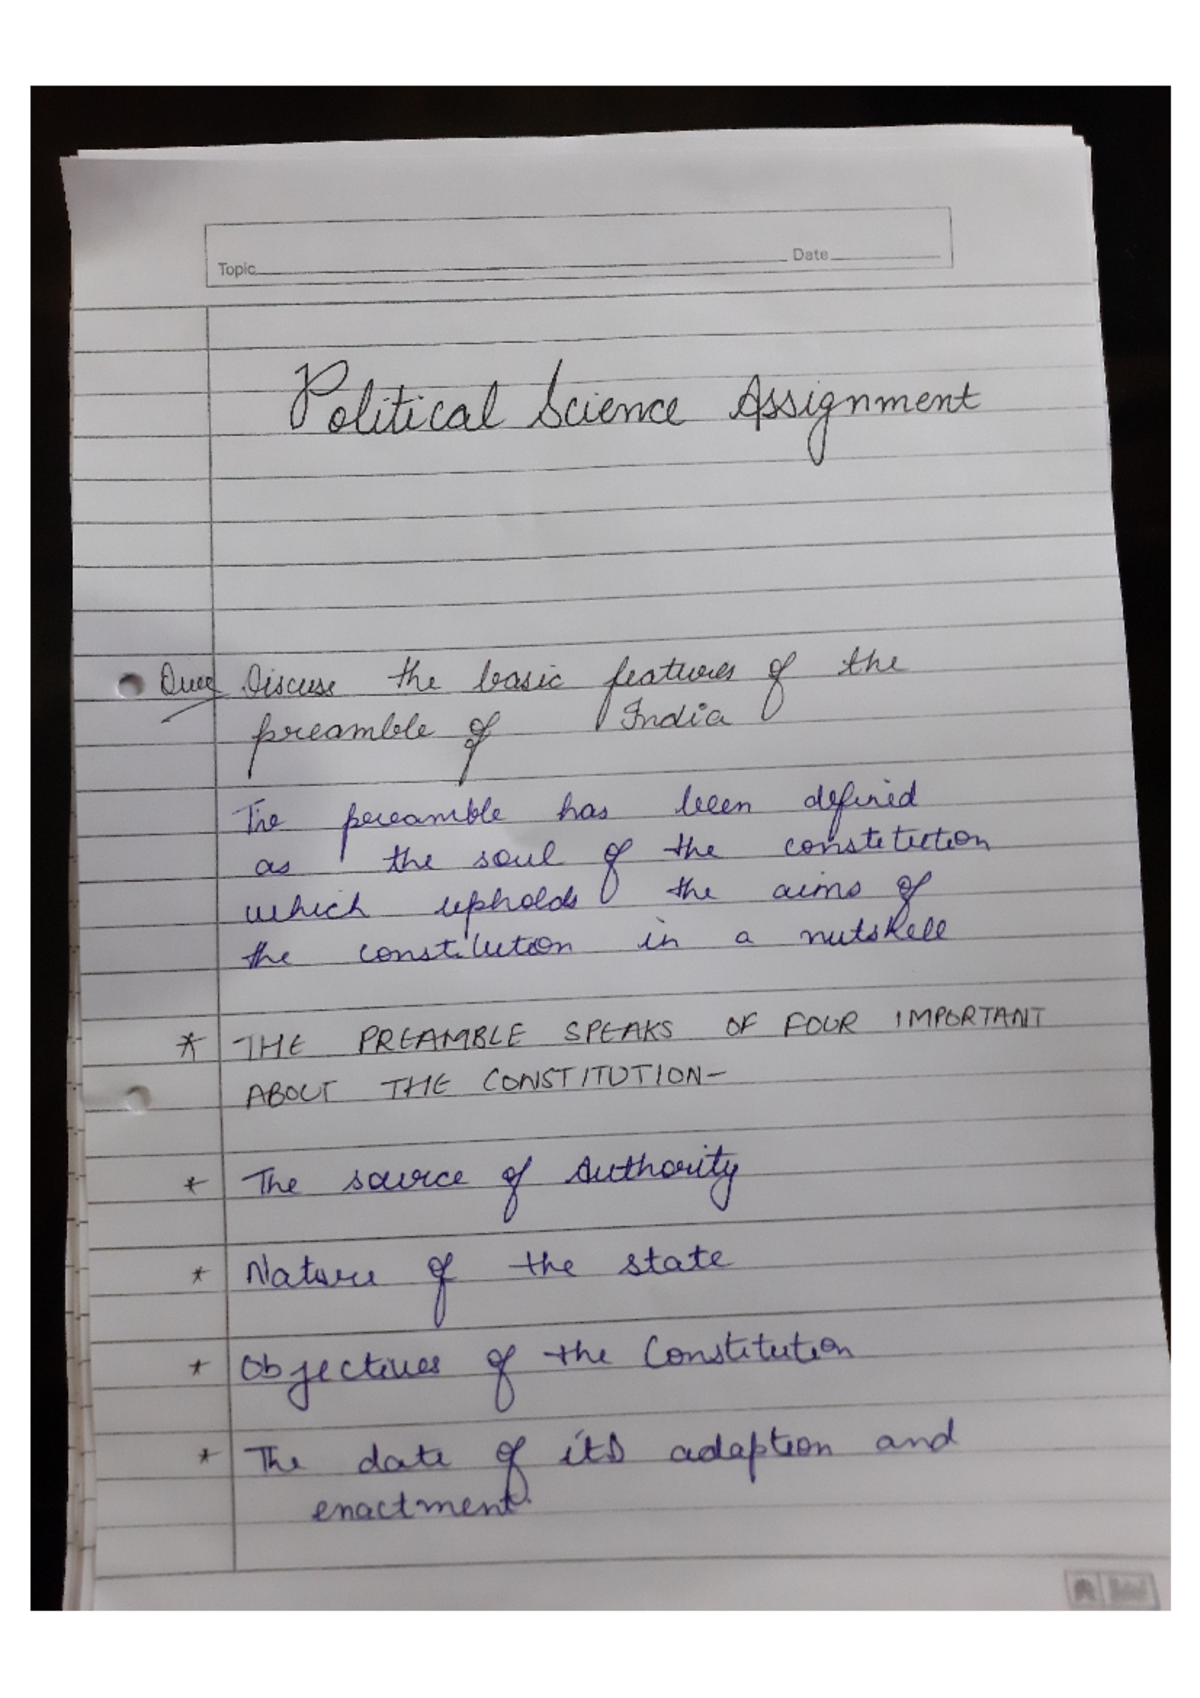 Topic Date
Political Science Assignment
Ques Discuss the basic features of the
preamble of India
The preamble has been defined
as the soul of the constitution
which upholds the aims of
the constitution in a nutshell
* THE PREAMBLE SPEAKS OF FOUR IMPORTANT
ABOUT THE CONSTITUTION-
* The source of Authority
* Nature of the state
* Objectives of the Constitution
* The date of its adaption and
enactment.